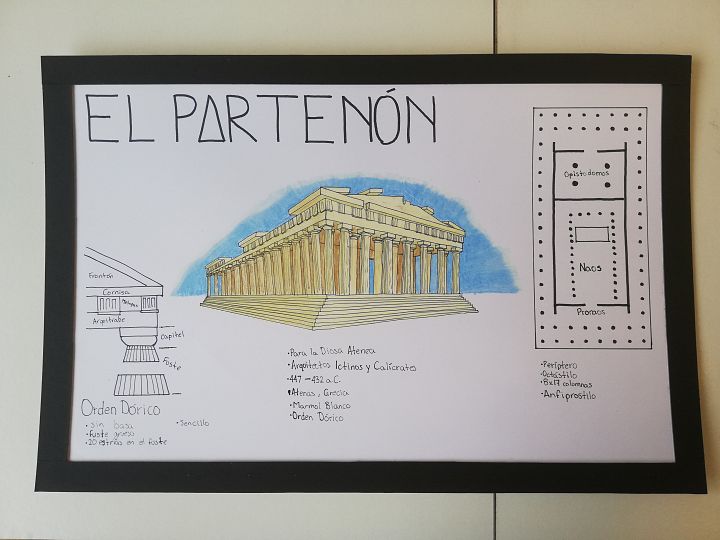 EL PARTENÓN
Frontón
Cornisa
Metopas
Arquitrabe
Capitel
Fuste
Orden Dórico
• Sin basa
• fuste grueso
• 20 estrías en el fuste
• Sencillo
• Para la Diosa Atenea
• Arquitectos Ictinos y Calícrates
• 447 - 432 a.C.
• Atenas, Grecia
• Marmol Blanco
• Orden Dórico
Opistodomos
Naos
Pronaos
• Períptero
• Octástilo
• 8x17 columnas
• Anfipróstilo